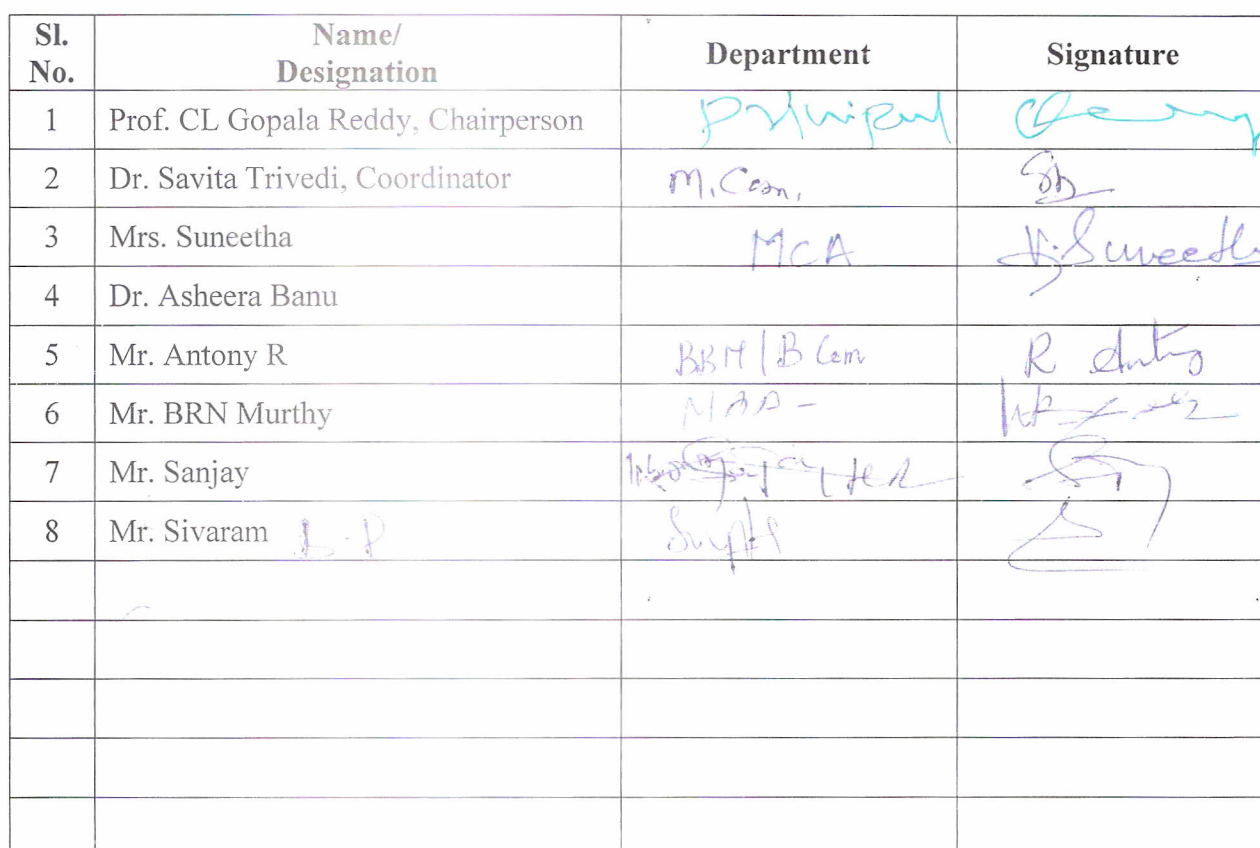 Sl. No. Name/ Designation Department Signature
1 Prof. CL Gopala Reddy, Chairperson Principal
2 Dr. Savita Trivedi, Coordinator M.Com.
3 Mrs. Suneetha MCA V. Suneetha
4 Dr. Asheera Banu
5 Mr. Antony R BBM / B Com R Antony
6 Mr. BRN Murthy
7 Mr. Sanjay
8 Mr. Sivaram